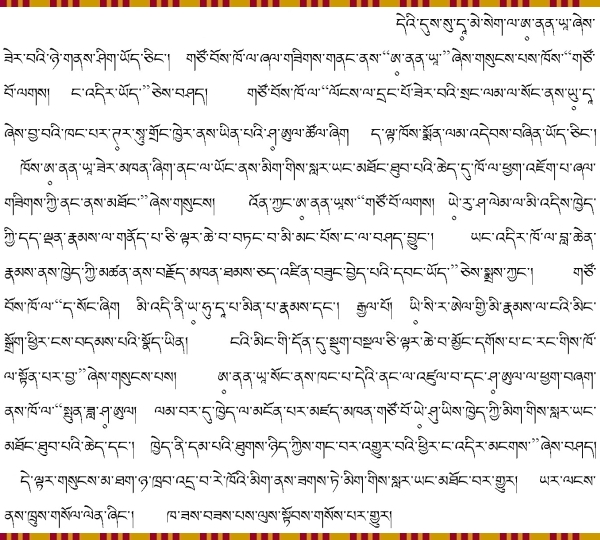 དེའི་དུས་སུ་དཱ་མེ་སེག་ལ་ཨ་ནན་ཡཱ་ཞེས་
ཟེར་བའི་ཉེ་གནས་ཤིག་ཡོད་ཅིང་། གཙོ་བོས་ཁོ་ལ་ཞལ་གཟིགས་གནང་ནས་“ཨ་ནན་ཡཱ་”ཞེས་གསུངས་པས་ཁོས་“གཙོ་
བོ་ལགས། ང་འདིར་ཡོད་”ཅེས་བཤད། གཙོ་བོས་ཁོ་ལ་“ལོངས་ལ་དྲང་པོ་ཟེར་བའི་སྲང་ལམ་ལ་སོང་ནས་ཡུ་དཱ་
ཞེས་བྱ་བའི་ཁང་པར་ཏར་སུ་གྲོང་ཁྱེར་ནས་ཡིན་པའི་ཤ་ཨུལ་ཚོལ་ཞིག ད་ལྟ་ཁོས་སྨོན་ལམ་འདེབས་བཞིན་ཡོད་ཅིང་།
ཁོས་ཨ་ནན་ཡཱ་ཟེར་མཁན་ཞིག་ནང་ལ་ཡོང་ནས་མིག་གིས་སླར་ཡང་མཐོང་ཐུབ་པའི་ཆེད་དུ་ཁོ་ལ་ཕྱག་འཇོག་པ་ཞལ་
གཟིགས་ཀྱི་ནང་ནས་མཐོང་”ཞེས་གསུངས། འོན་ཀྱང་ཨ་ནན་ཡཱས་“གཙོ་བོ་ལགས། ཡེ་རུ་ཤ་ལེམ་ལ་མི་འདིས་ཁྱེད་
ཀྱི་དད་ལྡན་རྣམས་ལ་གནོད་པ་ཅི་ལྟར་ཆེ་བ་བཏང་བ་མི་མང་པོས་ང་ལ་བཤད་བྱུང་། ཡང་འདིར་ཁོ་ལ་བླ་ཆེན་
རྣམས་ནས་ཁྱེད་ཀྱི་མཚན་ནས་བརྗོད་མཁན་ཐམས་ཅད་འཛིན་བཟུང་བྱེད་པའི་དབང་ཡོད་”ཅེས་སྨྲས་ཀྱང་། གཙོ་
བོས་ཁོ་ལ་“ད་སོང་ཞིག མི་འདི་ནི་ཡ་ཧུ་དཱ་པ་མིན་པ་རྣམས་དང་། རྒྱལ་པོ། ཡི་སི་ར་ཨེལ་གྱི་མི་རྣམས་ལ་ངའི་མིང་
སྒྲོག་ཕྱིར་ངས་བདམས་པའི་སྣོད་ཡིན། ངའི་མིང་གི་དོན་དུ་སྡུག་བསྔལ་ཅི་ལྟར་ཆེ་བ་མྱོང་དགོས་པ་ང་རང་གིས་ཁོ་
ལ་སྟོན་པར་བྱ་”ཞེས་གསུངས་པས། ཨ་ནན་ཡཱ་སོང་ནས་ཁང་པ་དེའི་ནང་ལ་འཛུལ་བ་དང་ཤ་ཨུལ་ལ་ཕྱག་བཞག་
ནས་ཁོ་ལ་“སྤུན་ཟླ་ཤ་ཨུལ། ལམ་བར་དུ་ཁྱེད་ལ་མངོན་པར་མཛད་མཁན་གཙོ་བོ་ཡེ་ཤུ་ཡིས་ཁྱེད་ཀྱི་མིག་གིས་སླར་ཡང་
མཐོང་ཐུབ་པའི་ཆེད་དང་། ཁྱེད་ནི་དམ་པའི་ཐུགས་ཉིད་ཀྱིས་གང་བར་འགྱུར་བའི་ཕྱིར་ང་འདིར་མངགས་”ཞེས་བཤད།
དེ་ལྟར་གསུངས་མ་ཐག་ཉ་ཁྲབ་འདྲ་བ་རེ་ཁོའི་མིག་ནས་ཟགས་ཏེ་མིག་གིས་སླར་ཡང་མཐོང་བར་གྱུར། ཡར་ལངས་
ནས་ཁྲུས་གསོལ་ལེན་ཞིང་། ཁ་ཟས་བཟས་པས་ལུས་སྟོབས་གསོས་པར་གྱུར།